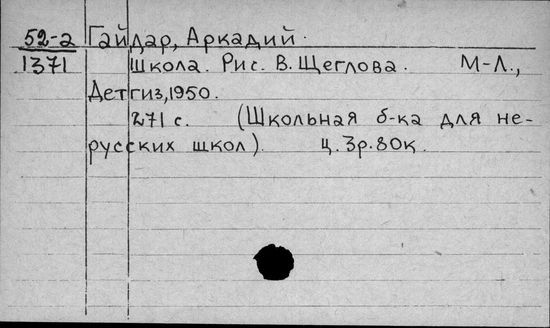 52-2 Гайдар, Аркадий.
1371 Школа. Рис. В. Щеглова. М-Л.,
Детгиз, 1950.
271 с. (Школьная б-ка для не-
русских школ). ц. 3р. 80к.